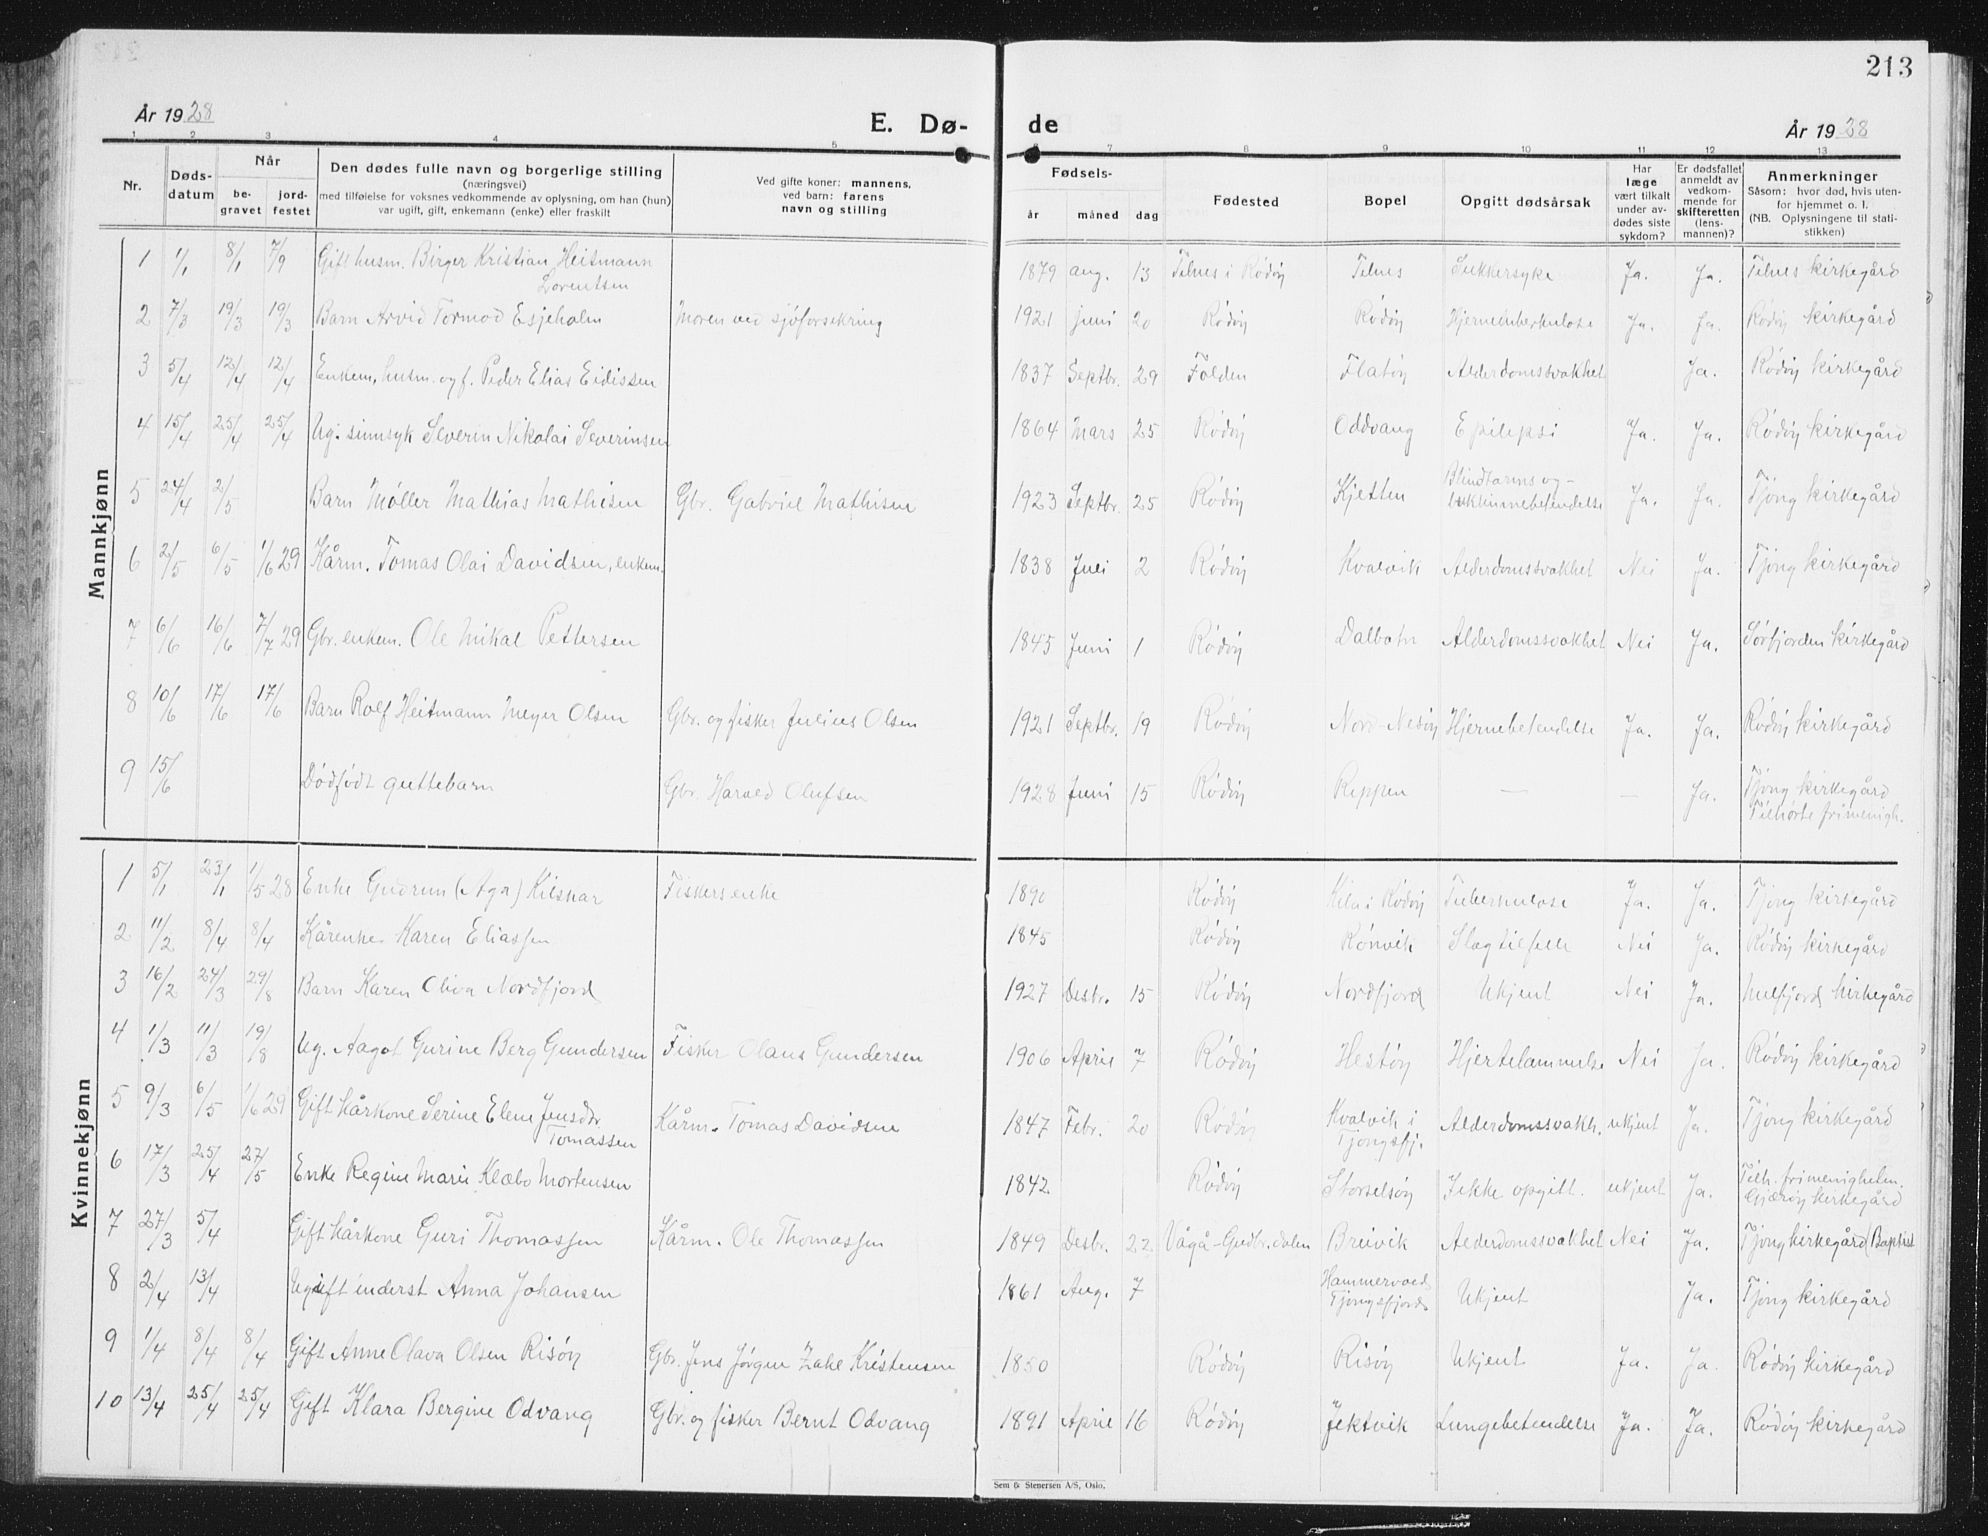 213
År 1928 E. Dø- de År 1928
1 2 3 4 5 6 7 8 9 10 11 12 13
Nr. Døds-datum Når be-gravet jord-festet
Den dødes fulle navn og borgerlige stilling
(næringsvei)
med tilføielse for voksnes vedkommende av oplysning, om han (hun)
var ugift, gift, enkemann (enke) eller fraskilt
Ved gifte koner: mannens,
ved barn: farens
navn og stilling
Fødsels- år måned dag
Fødested
Bopel
Opgitt dødsårsak
Har læge vært tilkalt under av-dødes siste sykdom?
Er dødsfallet anmeldt av vedkom-mende for skifteretten (lens-mannen)?
Anmerkninger
Såsom: hvor død, hvis uten-for hjemmet o. l.
(NB. Oplysningene til stati-stikken)
Mannkjønn
1 1/1 8/1 7/9 Gift husm. Birger Kristian Heitmann Lorentsen 1879 aug. 13 Telnes i Rödöy Telnes Sukkersyke Ja. Ja. Telnes kirkegård
2 7/3 19/3 19/3 Barn Arvid Tormod Esjeholm Moren ved sjöforsikring 1921 juni 20 Rödöy Rödöy Hjernetuberkulose Ja. Ja. Rödöy kirkegård
3 5/4 12/4 12/4 Enkem, husm. og f. Peder Elias Eidissen 1837 Septbr. 29 Folden Flatöy Alderdomssvakhet Ja. Rödöy kirkegård
4 15/4 25/4 25/4 Ug. sinnsyk Severin Nikolai Severinsen 1864 Mars 25 Rödöy Oddvang Epilepsi Ja. Ja. Rödöy kirkegård
5 24/4 2/5 Barn Møller Mathias Mathisen Gbr. Gabriel Mathisen 1923 Septbr. 25 Rödöy Kjetten Blindtarms og - bukhinnebetendelse Ja. Ja. Tjong kirkegård
6 2/5 6/5 1/6 29 Kårm. Tomas Olai Davidsen, enkem. 1838 Juli 2 Rödöy Kvalvik Alderdomssvakhet Nei Ja. Tjong kirkegård
7 6/6 16/6 7/7 29 Gbr. enkem. Ole Mikal Pettersen 1845 Juni 1 Rödöy Dalbotn Alderdomssvakhet Nei Ja. Sörfjorden kirkegård
8 10/6 17/6 17/6 Barn Rolf Heitmann Meyer Olsen Gbr. og fisker Julius Olsen 1921 Septbr. 19 Rödöy Nord-Nesöy Hjernebetendelse Ja. Ja. Rödöy kirkegård
9 15/6 Dödfödt guttebarn Gbr. Harald Olufsen 1928 Juni 15 Rödöy Reppen — — Ja. Tjong kirkegård Tilhörte frimenigh.
Kvinnekjønn
1 5/1 23/1 1/5 28 Enke Gudrun (Aga) Kilskar Fiskers enke 1890 Rödöy Kila i Rödöy Tuberkulose Ja. Ja. Tjong kirkegård
2 11/2 8/4 8/4 Kårenke Karen Eliassen 1845 Rödöy Rönvik Slagtilfelle Nei Ja. Rödöy kirkegård
3 16/2 24/3 29/8 Barn Karen Oliva Nordfjord 1927 Desbr. 15 Rödöy Nordfjord Ukjent Nei Ja. Melfjord kirkegård
4 1/3 11/3 19/8 Ug. Aagot Gurine Berg Gundersen Fisker Olaus Gundersen 1906 April 7 Rödöy Hestöy Hjertelammelse Nei Ja. Rödöy kirkegård
5 9/3 6/5 1/6 29 Gift kårkone Serine Elene Jensdtr Tomassen Kårm. Tomas Davidsen 1847 Febr. 20 Rödöy Kvalvik i Tjongsfj. Alderdomssvakh. ukjent Ja. Tjong kirkegård
6 17/3 25/4 27/5 Enke Regine Marie Klæbo Mortensen 1842 Rödöy Storselsöy Ikke opgitt. ukjent Ja. Tilh. frimenigheten. Gjæröy kirkegård
7 27/3 5/4 Gift kårkone Guri Thomassen Kårm. Ole Thomassen 1849 Desbr. 22 Vågå-Gudbr.dalen Breivik Alderdomssvakhet Nei Ja. Tjong kirkegård (Baptist
8 2/4 13/4 Ugift inderst Anna Johansen 1861 Aug. 7 Hammervold Tjongsfjord Ukjent Ja. Tjong kirkegård
9 1/4 8/4 8/4 Gift Anne Olava Olsen Risöy Gbr. Jens Jörgen Zahl Kristensen 1850 Rödöy Risöy Ukjent Ja. Ja. Rödöy kirkegård
10 13/4 25/4 25/4 Gift Klara Bergine Odvang Gbr. og fisker Bernt Odvang 1891 April 16 Rödöy Jektvik Lungebetendelse Ja. Ja. Rödöy kirkegård
Sem & Stenersen A/S, Oslo.